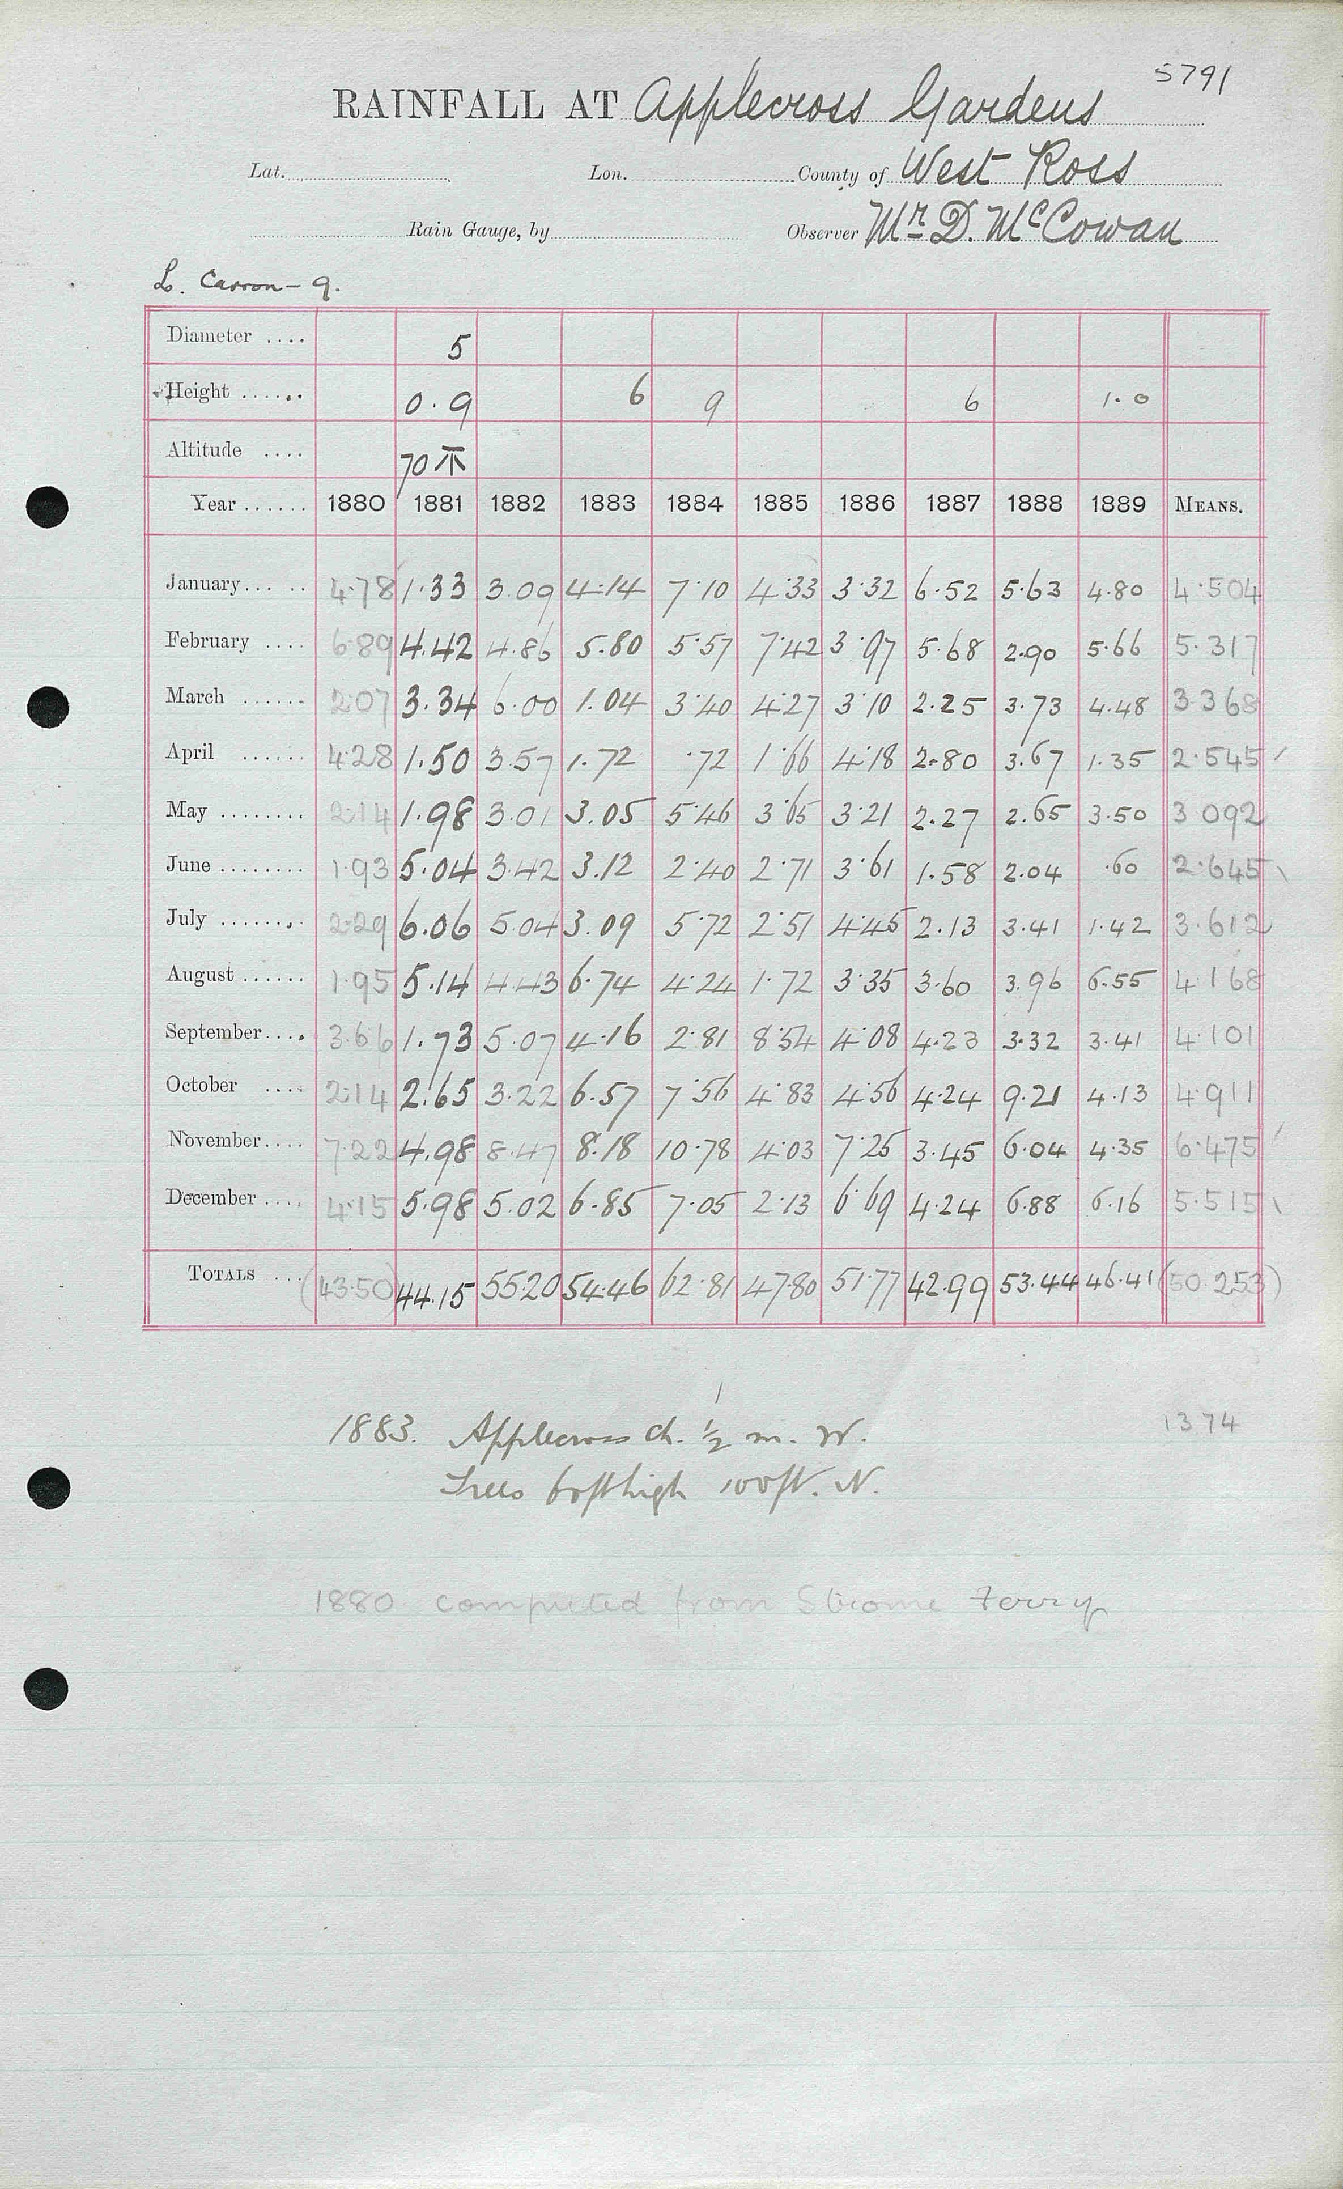 5791
RAINFALL AT Applecross Gardens
Lat. Lon. County of West Ross
Rain Gauge, by Observer Mr. D. McCowan
L. Carron - 9.
Diameter .... 5
Height ...... 0.9 6 9 6 1.0
Altitude .... 70
Year ...... 1880 1881 1882 1883 1884 1885 1886 1887 1888 1889 MEANS.
January... .. 4.78 1.33 3.09 4.14 7.10 4.33 3.32 6.52 5.63 4.80 4.504
February .... 6.89 4.42 4.86 5.80 5.57 7.42 3.97 5.68 2.90 5.66 5.317
March ...... 2.07 3.34 6.00 1.04 3.40 4.27 3.10 2.25 3.73 4.48 3.368
April ...... 4.28 1.50 3.57 1.72 .72 1.66 4.18 2.80 3.67 1.35 2.545
May ........ 2.14 1.98 3.01 3.05 5.46 3.65 3.21 2.27 2.65 3.50 3.092
June ........ 1.93 5.04 3.42 3.12 2.40 2.71 3.61 1.58 2.04 .60 2.645
July ........ 2.29 6.06 5.04 3.09 5.72 2.51 4.45 2.13 3.41 1.42 3.612
August ...... 1.95 5.14 4.43 6.74 4.24 1.72 3.35 3.60 3.96 6.55 4.168
September.... 3.66 1.73 5.07 4.16 2.81 8.54 4.08 4.23 3.32 3.41 4.101
October .... 2.14 2.65 3.22 6.57 7.56 4.83 4.56 4.24 9.21 4.13 4.911
November.... 7.22 4.98 8.47 8.18 10.78 4.03 7.25 3.45 6.04 4.35 6.475
December .... 4.15 5.98 5.02 6.85 7.05 2.13 6.69 4.24 6.88 6.16 5.515
TOTALS ... (43.50) 44.15 55.20 54.46 62.81 47.80 51.77 42.99 53.44 46.41 (50.253)
1883. Applecross ch. 1/2 m. W. 1374
Trees 60ft high 100ft. N.
1880 computed from Strome Ferry